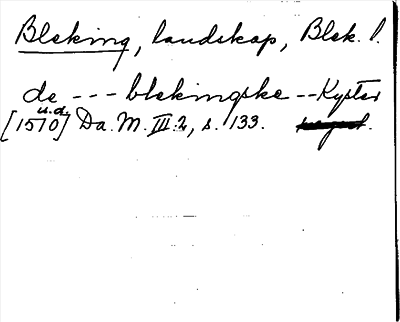 Bleking, landskap, Blek. l.
de --- blekingske -- Kyster
u.d.
[1510] Da. M. III:2, s. 133.